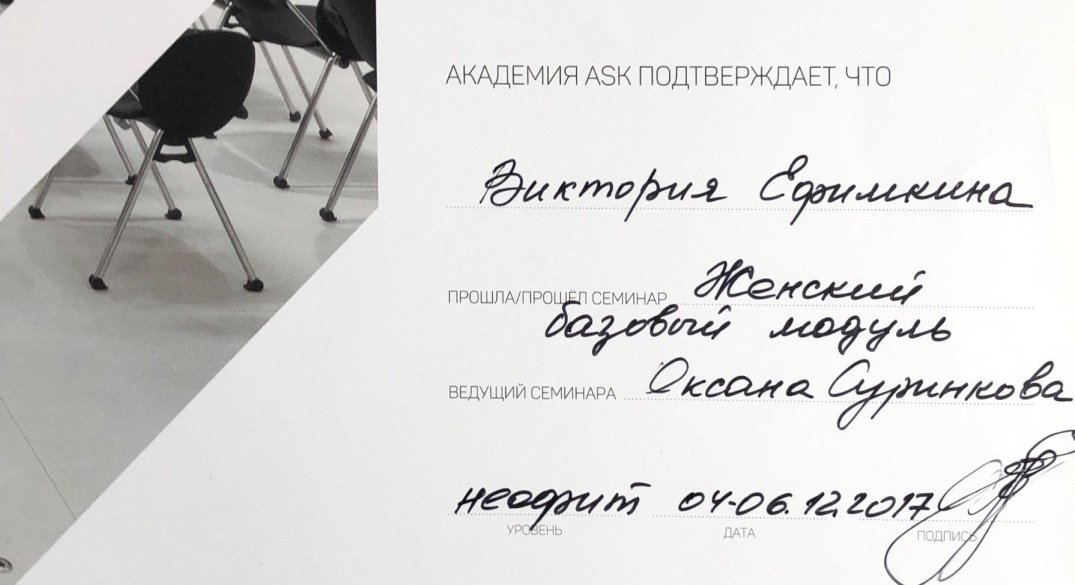 АКАДЕМИЯ ASK ПОДТВЕРЖДАЕТ, ЧТО
Виктория Ефимкина
ПРОШЛА/ПРОШЁЛ СЕМИНАР Женский
базовый модуль
ВЕДУЩИЙ СЕМИНАРА Оксана Суринкова
неофит 04-06.12.2017
УРОВЕНЬ ДАТА ПОДПИСЬ